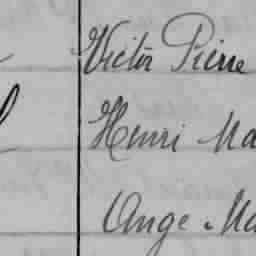 Victor Pierre
Henri Ma
Ange Ma